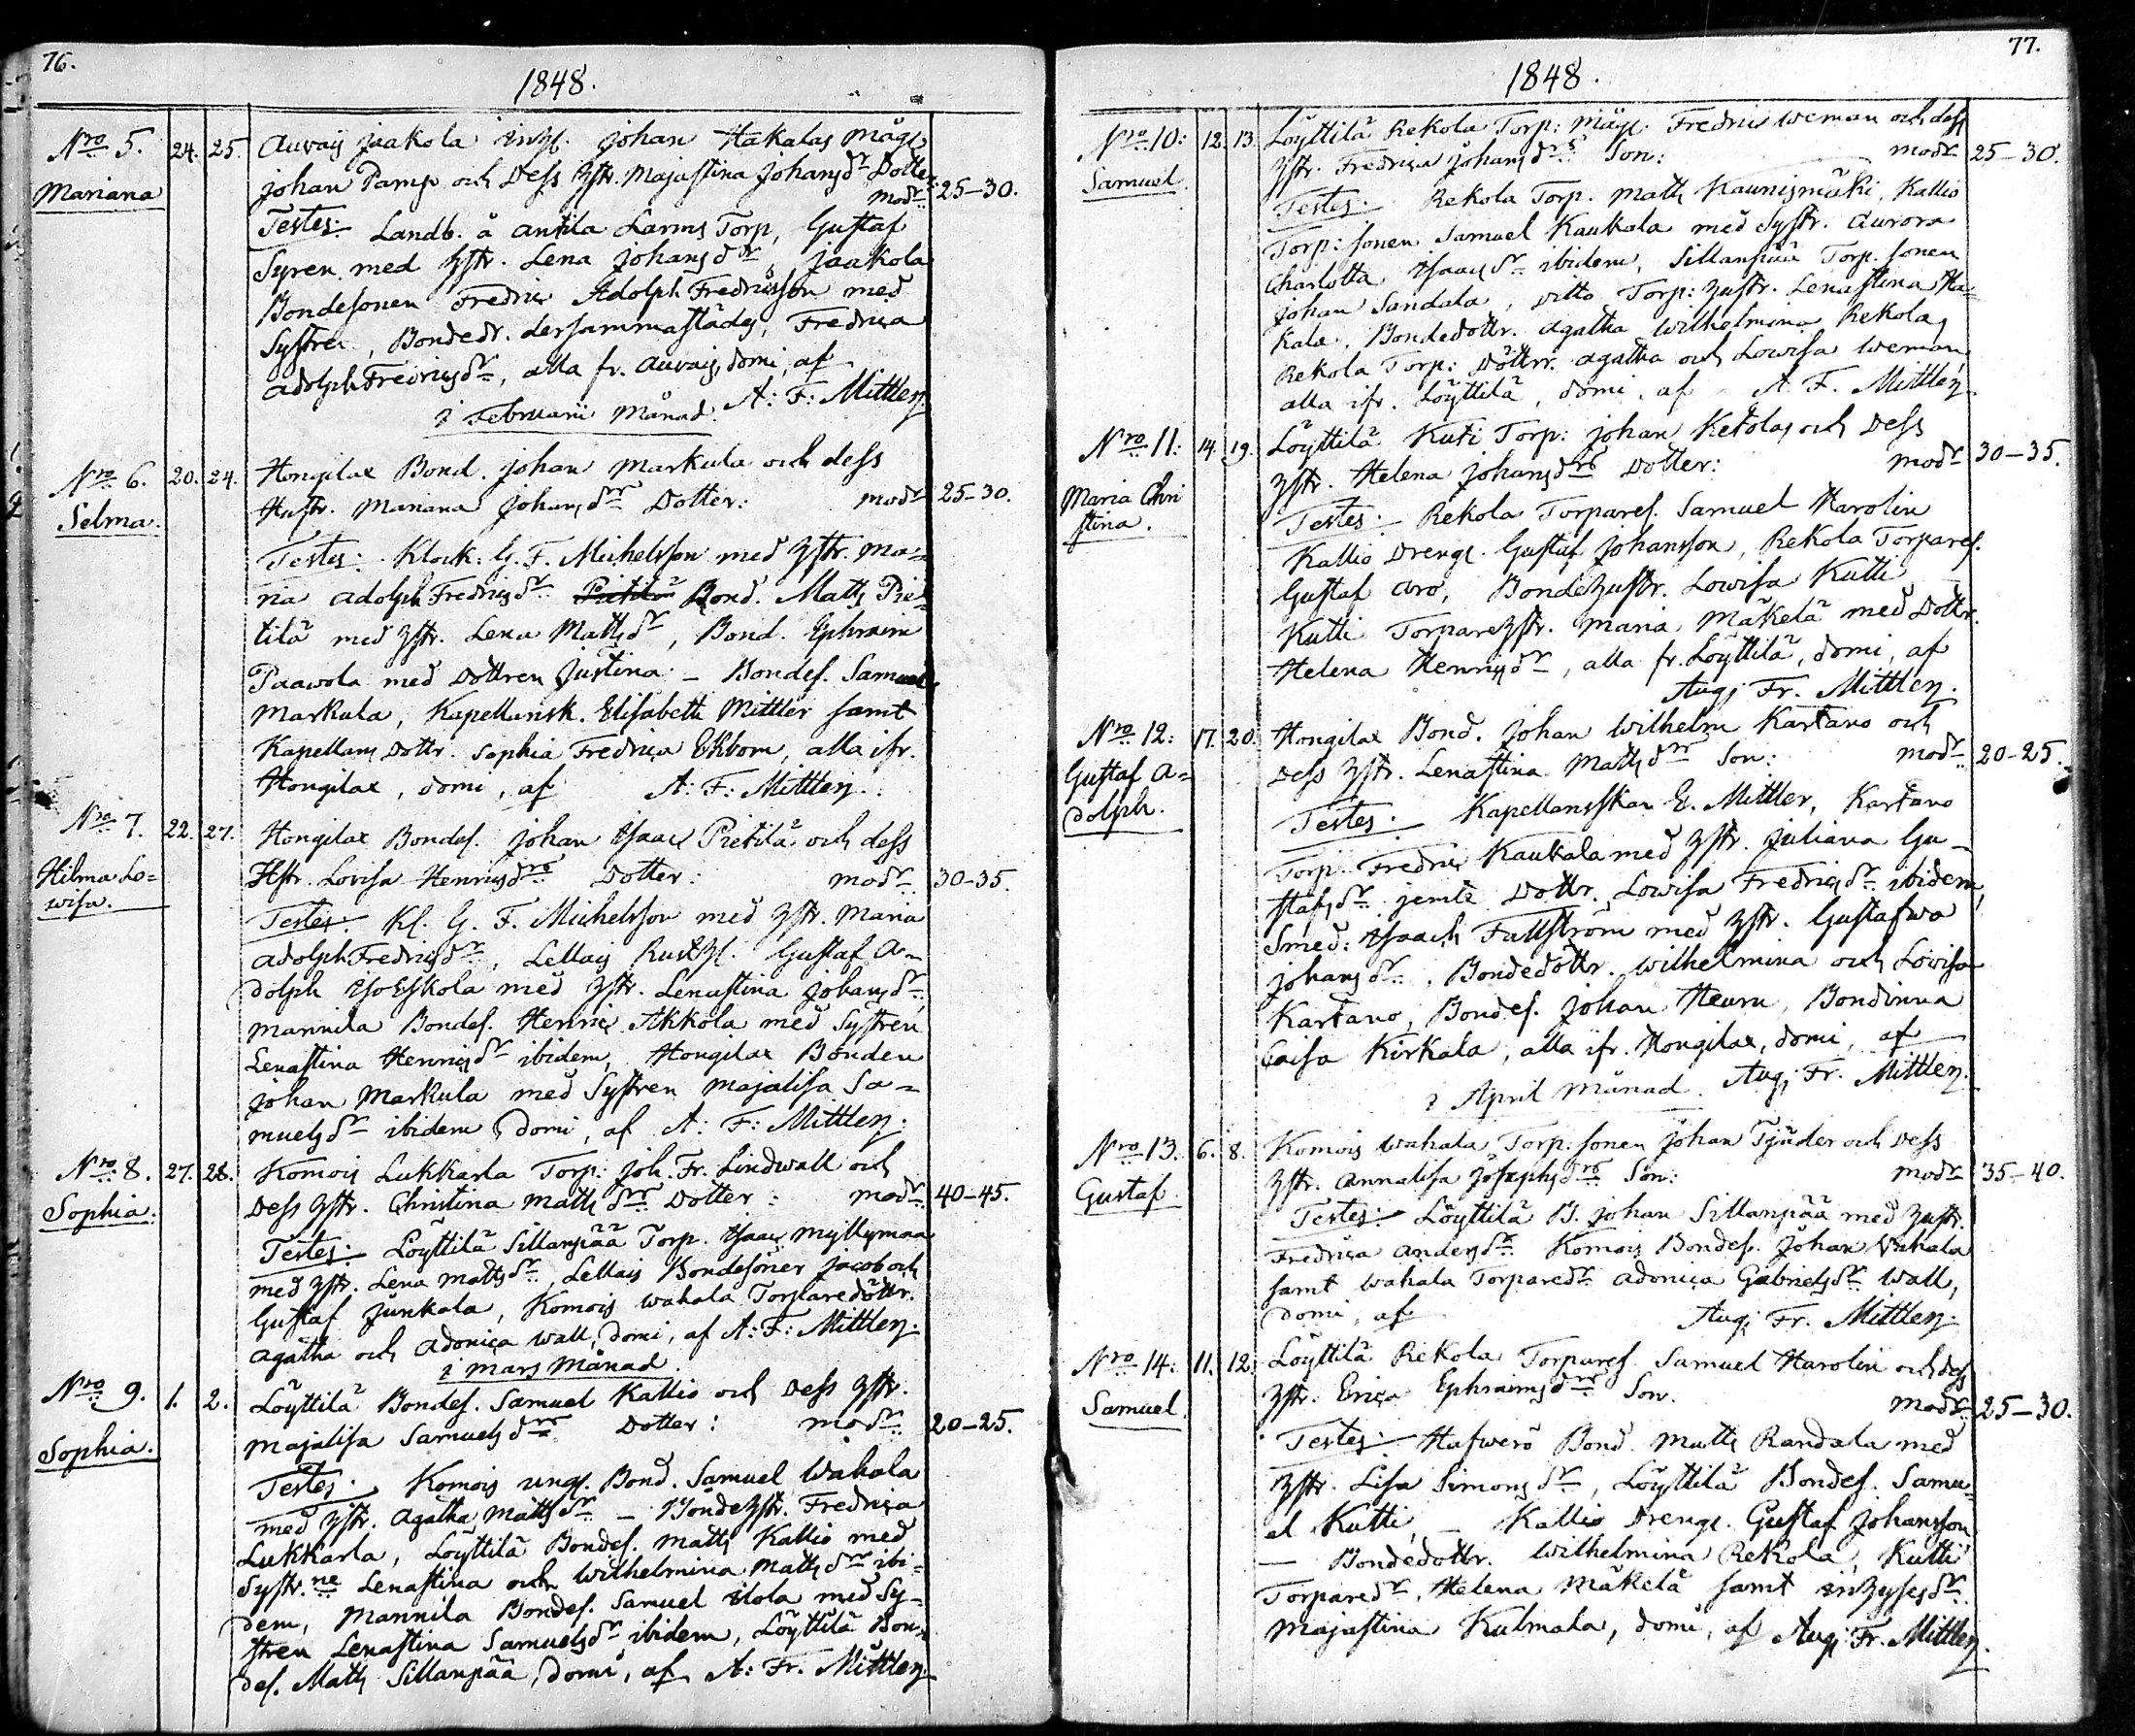 76.
1848.
Nro 5. 24. 25. Auvais Jaakola inh. Johan Hakalas måg
Mariana Johan Pamp och Dess hstr. Majastina Johansdr Dotter:
modr 25-30.
Testes: Landb. å Antila Larms Torp, Gustaf
Syren med hstr. Lena Johansdr, Jaakola
Bondesonen Fredric Adolph Fredricsson med
Systren, Bondedr. dersammastädes, Fredrica
Adolph Fredricsdr, alla fr. Auvais, domi, af
A: F: Mittler.
i Februarii Månad.
Nro 6. 20. 24. Hongilax Bond. Johan Markula och dess
Selma. Hustr. Mariana Johansdrr Dotter: modr 25-30.
Testes: Klock: G. F. Michelsson med hstr. Ma=
ria Adolph Fredricsdr Bond. Matts Pie=
tilä med hstr. Lena Mattsdr, Bond. Ephraim
Paavola med Dottren Justina - Bondes. Samuel
Markula, Kapellansk. Elisabeth Mittler samt
Kapellans Dottr. Sophia Fredrica Ekbom, alla ifr.
Hongilax, domi, af A: F: Mittler.
Nro 7. 22. 27. Hongilax Bondes. Johan Isaac Pietilä och dess
Hilma Lo=
wisa.
Hstr. Lovisa Henricsdrs Dotter: modr 30-35.
Testes: Kl. G. F. Michelsson med hstr. Maria
Adolph Fredricsdr, Lellais Rusth. Gustaf A=
dolph Iso Eskola med hstr. Lenastina Johansdr
Mannila Bondes. Henric Akkola med Systren
Lenastina Henricsdr ibidem, Hongilax Bonden
Johan Markula med Systren Majalisa Sa=
muelsdr ibidem domi, af A: F: Mittler.
Nro 8. 27. 28. Komois Lukkarla Torp: Joh. Fr. Lindwall och
Sophia. Dess hstr. Christina Mattsdrr Dotter: modr 40-45.
Testes: Löyttilä Sillanpää Torp. Isaac Myllymaa
med hstr. Lena Mattsdr, Lellais Bondesöner Jacob och
Gustaf Junkala, Komois Wahala Torparedöttr.
Agatha och Adonica Wall, domi, af A: F: Mittler.
i Mars Månad.
Nro 9. 1. 2. Löyttilä Bondes. Samuel Kallio och Dess hstr.
Sophia. Majalisa Samuelsdrr Dotter: modr 20-25.
Testes: Komois ungs. Bond. Samuel Wahala
med hstr. Agatha Mattsdr - Bondehstr. Fredrica
Lukkarla, Löyttilä Bondes. Matts Kallio med
Systr.ne Lenastina och Wilhelmina Mattsdrr ibi=
dem, Mannila Bondes. Samuel Ilola med Sy=
stren Lenastina Samuelsdr ibidem, Löyttilä Bon=
des. Matts Sillanpää, domi, af A: Fr. Mittler.
77.
1848.
Nro 10: 12. 13. Löyttilä Rekola Torp: måg. Fredric Weman och dess
Samuel. hstr. Fredrica Johansdrs Son: modr 25-30.
Testes: Rekola Torp. Matts Kaunismäki, Kallio
Torp: sonen Samuel Kaukala med Systr. Aurora
Charlotta Isaacsdr ibidem, Sillanpää Torp. sonen
Johan Sandala, ditto Torp: hustr. Lenastina Ha=
kala, Bondedottr. Agatha Wilhelmina Rekola,
Rekola Torp: Döttrr. Agatha och Lowisa Weman,
alla ifr. Löyttilä, domi, af A. F. Mittler.
Nro 11: 14. 19. Löyttilä Kuti Torp: Johan Ketolas och Dess
Maria Chri
stina.
hstr. Helena Johansdrs Dotter: modr 30-35.
Testes: Rekola Torpares. Samuel Harolin
Kallio Dreng. Gustaf Johansson, Rekola Torpares.
Gustaf Aro, Bondehustr. Lowisa Kutti
Kutti Torparehstr. Maria Mäkelä med Dottr.
Helena Henricsdr, alla fr. Löyttilä, domi, af
Aug: Fr. Mittler.
Nro 12: 17. 20. Hongilax Bond. Johan Wilhelm Kartano och
Gustaf A=
dolph.
Dess hstr. Lenastina Mattsdrr Son: modr 20-25.
Testes: Kapellansskan E. Mittler, Kartano
Torp. Fredric Kaukala med hstr. Juliana Gu=
stafsdr jemte Dottr. Lowisa Fredricsdr ibidem,
Smed: Isaach Fallström med hstr. Gustafwa
Johansdr, Bondedöttr. Wilhelmina och Lovisa
Kartano, Bondes. Johan Heuru, Bondinna
Caisa Kirkala, alla ifr. Hongilax, domi, af
Aug: Fr. Mittler.
i April Månad.
Nro 13. 6. 8. Komois Wahala Torp: sonen Johan Tjäder och Dess
Gustaf. hstr. Annalisa Josephsdrs Son: modr 35-40.
Testes: Löyttilä B. Johan Sillanpää med hustr.
Fredrica Andersdr. Komois Bondes. Johan Wahala
samt Wahala Torparedr Adonica Gabrielsdr Wall,
domi, af Aug: Fr. Mittler.
Nro 14: 11. 12. Löyttilä Rekola Torpares. Samuel Harolin och dess
Samuel. hstr. Erica Ephraimsdrr Son. modr 25-30.
Testes: Hafwerö Bond. Matts Randala med
hstr. Lisa Simonsdr, Löyttilä Bondes. Samu=
el Kutti, - Kallio Dreng. Gustaf Johansson,
- Bondedottr. Wilhelmina Rekola, Kutti
Torparedr. Helena Mäkelä samt inhysesdr.
Majastina Kulmala, domi, af Aug: Fr. Mittler.